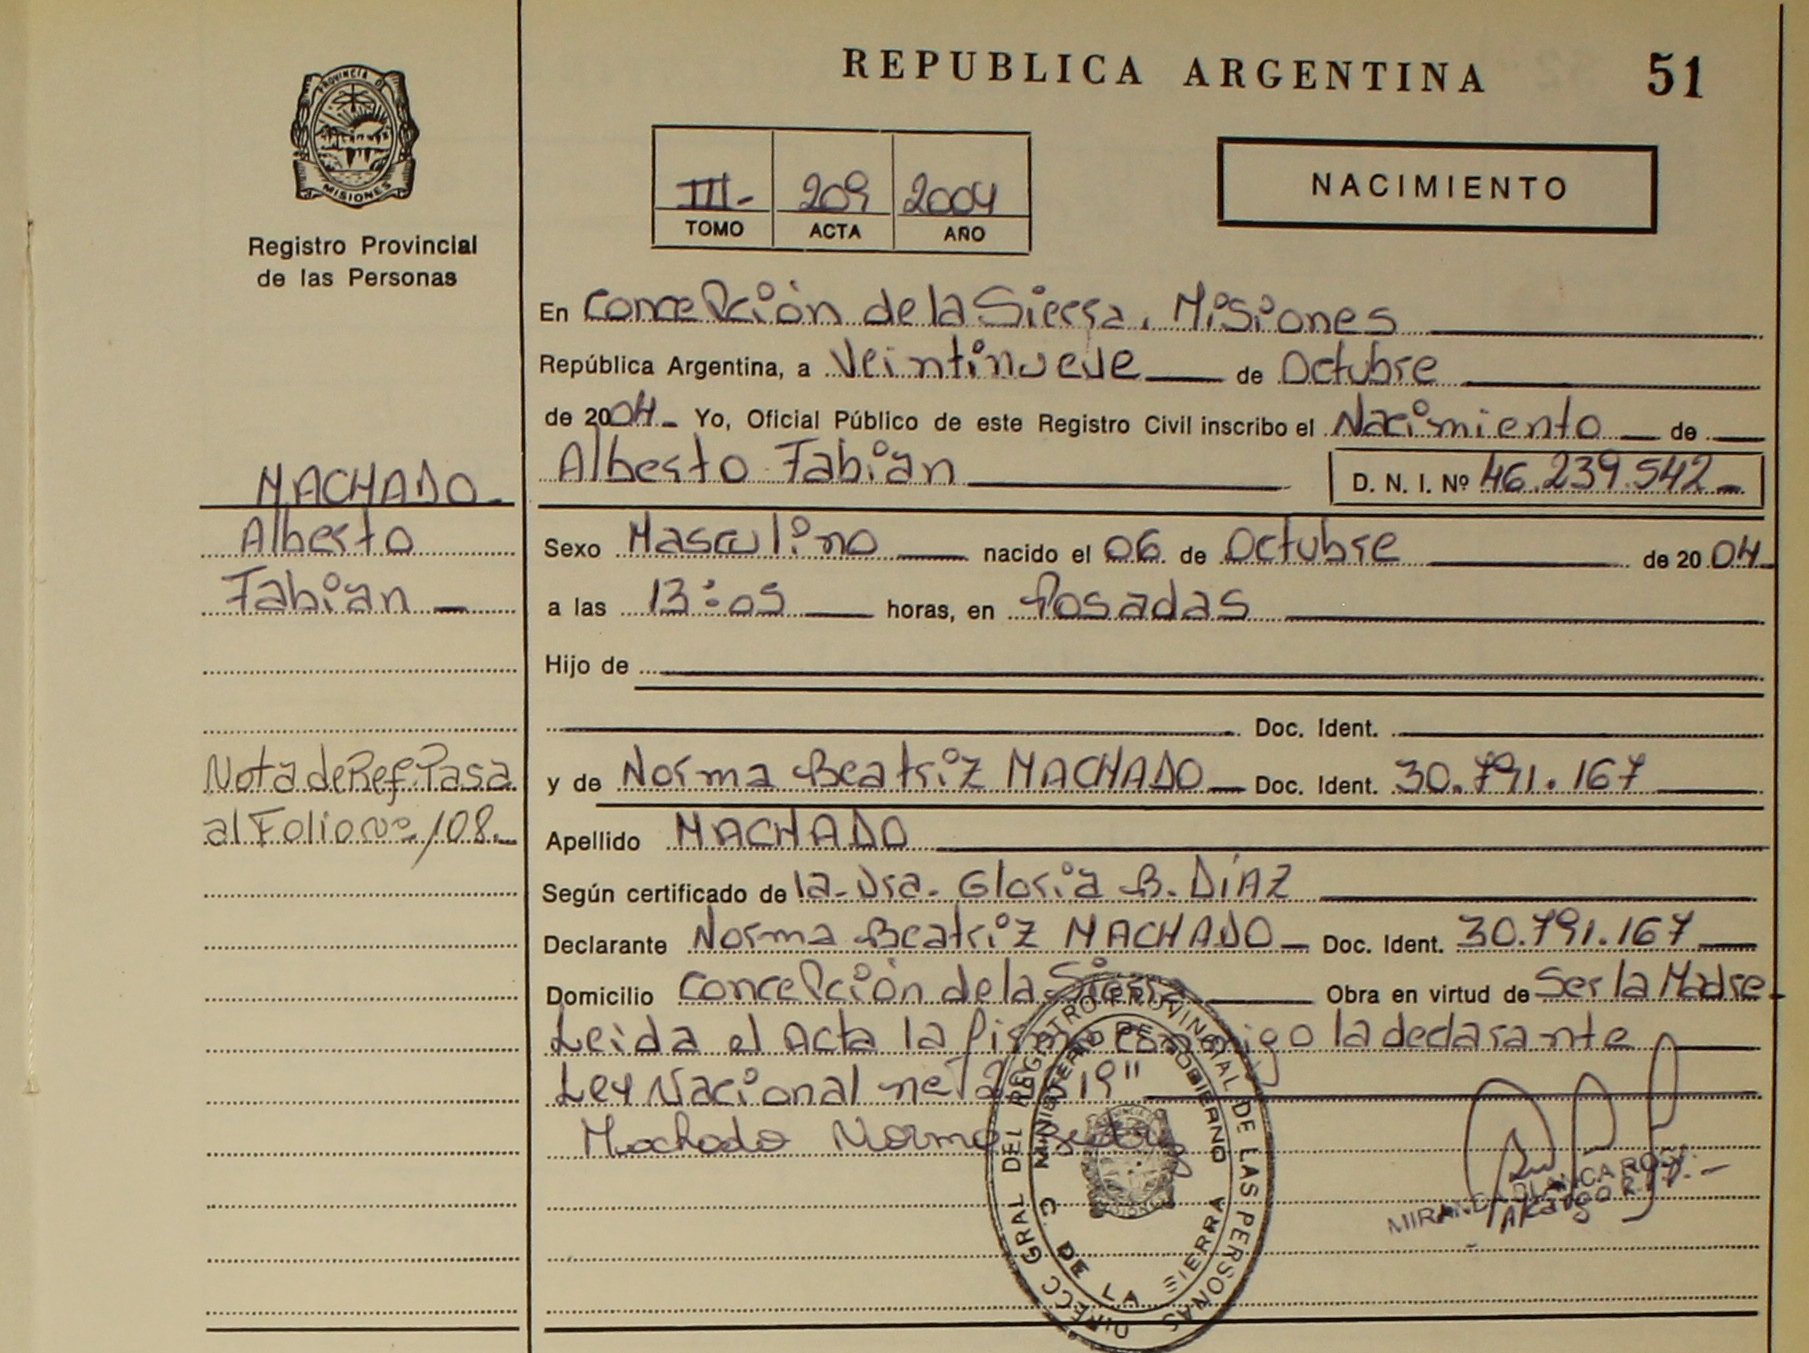 REPUBLICA ARGENTINA 51
PROVINCIA D
MISIONES
Registro Provincial
de las Personas
III- 209 2004
TOMO ACTA AÑO
NACIMIENTO
En Concepción de la Sierra, Misiones
República Argentina, a Veintinueve de Octubre
de 2004- Yo, Oficial Público de este Registro Civil inscribo el Nacimiento de
Alberto Fabian D. N. I. Nº 46.239.542-
MACHADO-
Alberto
Fabian -
Sexo Masculino nacido el 06 de Octubre de 2004-
a las 13:05 horas, en Posadas
Hijo de
Doc. Ident.
y de Norma Beatriz MACHADO- Doc. Ident. 30.791.167
Nota de Ref. Pasa
al Folio nº 108-
Apellido MACHADO
Según certificado de la Dra. Gloria B. DÍAZ
Declarante Norma Beatriz MACHADO- Doc. Ident. 30.791.167
Domicilio Concepción de la Sierra Obra en virtud de Ser la Madre-
Leida el Acta la firma conmigo la declarante
Ley Nacional 19"
Machado Norma Beatriz
DIRECC GRAL DEL REGISTRO PROVINCIAL DE LAS PERSONAS
MINISTERIO DE GOBIERNO
C. DE LA SIERRA
MIRANDA BLANCA ROSA
A cargo R.P.P.-